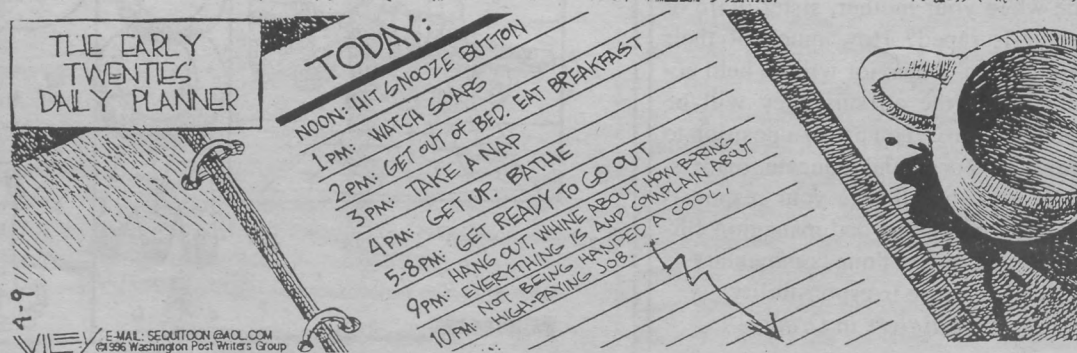 THE EARLY
TWENTIES'
DAILY PLANNER
TODAY:
NOON: HIT SNOOZE BUTTON
1PM: WATCH SOAPS
2PM: GET OUT OF BED. EAT BREAKFAST
3 PM: TAKE A NAP
4 PM: GET UP. BATHE
5-8PM: GET READY TO GO OUT
9PM: HANG OUT, WHINE ABOUT HOW BORING
EVERYTHING IS AND COMPLAIN ABOUT
10 PM: NOT BEING HANDED A COOL,
HIGH-PAYING JOB...
4-9
WILEY
E-MAIL: SEQUITOON @AOL.COM
©1996 Washington Post Writers Group